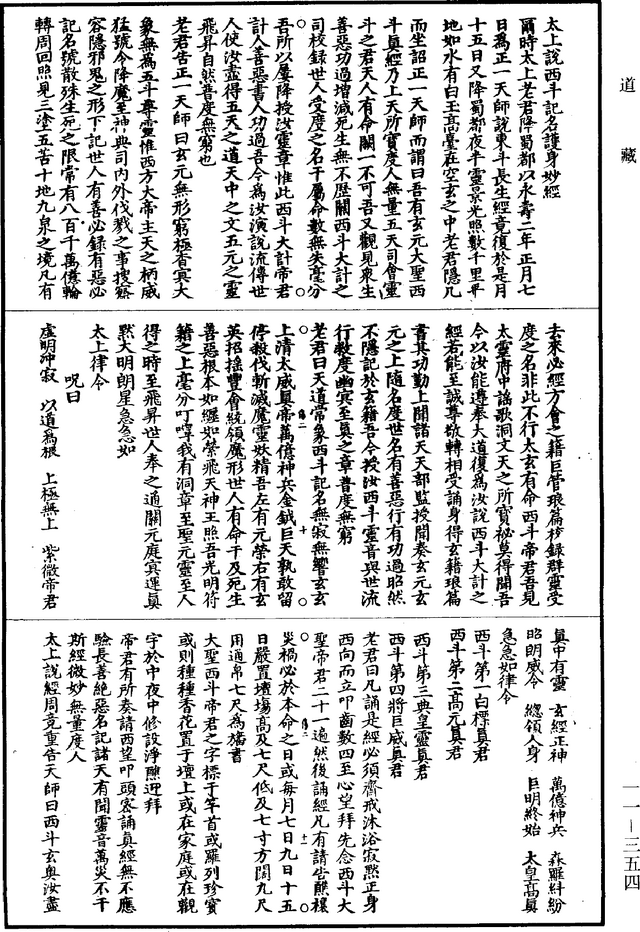 道藏
太上說西斗記名護身妙經
爾時太上老君降蜀都以永壽二年正月七
日為正一天師說東斗長生經竟復於是月
十五日又降蜀都夜半靈景光照數千里平
地如水有白玉高臺在空玄之中老君隱几
而坐詔正一天師而謂曰吾有玄元大聖西
斗真經乃上天所寶度人無量五天司會靈
斗之君天人有命闕一不可吾又觀見眾生
善惡功過增減死生無不歷關西斗大計之
司校錄世人受度之名干屬命數無失毫分
吾所以屢降授汝靈章惟此西斗大計帝君
計人善惡書人功過吾今為汝演說流傳世
人使汝盡得五天之道天中之文五元之靈
飛昇自然普度無窮也
老君告正一天師曰玄元無形窮極杳冥大
象無為五斗尊靈惟西方大帝主天之柄威
猛號令降魔至神典司內外伐戮之事搜察
容隱邪鬼之形下記世人有善必錄有惡必
記名號散殊生死之限常有八百千萬億輪
轉周回照見三塗五苦十地九泉之境凡有
去來必經方會之籍巨管琅篇校錄群靈受
度之名非此不行太玄有命西斗帝君吾見
太靈府中謠歌洞文天之所寶祕莫得聞吾
今以汝能遵奉大道復為汝說西斗大計之
經若能至誠專敬轉相受誦身得玄籍琅篇
書其功勤上關諸天天部監授開奏玄元玄
元之上隨名度世名有善惡行有功過昭然
不隱記於玄籍吾今授汝西斗靈音與世流
行救度幽冥至真之章普度無窮
老君曰天道常象西斗記名無寂無響玄玄
上清太威真帝萬億神兵金鉞巨天孰敢留
停殺伐斬滅魔靈妖精吾左有元榮右有玄
英招搖豐會統領魔形世人有命干及死生
善惡根本如縲如縈飛天神王照吾光明符
籍之上毫分叮嚀我有洞章至聖元靈至人
得之時至飛昇世人奉之通關元庭冥運真
默大明朗星急急如
太上律令
呪曰
虛明沖寂 以道為根 上極無上 紫微帝君
真中有靈 玄經正神 萬億神兵 森羅糾紛
昭朗威令 總領人身 巨明終始 太皇高真
急急如律令
西斗第一白標真君
西斗第二高元真君
西斗第三典皇靈真君
西斗第四將巨威真君
老君曰凡誦是經必須齋戒沐浴寂默正身
西向而立叩齒數四至心望拜先念西斗大
聖帝君二十一遍然後誦經凡有請告醮禳
災禍必於本命之日或每月七日九日十五
日嚴置壇場高及七尺低及七寸方闊九尺
用通帛七尺為旛書
大聖西斗帝君之字標于竿首或羅列珍寶
或則種種香花置于壇上或在家庭或在觀
宇於中夜中修設淨醮迎拜
帝君有所奏請西望叩頭密誦真經無不應
驗長善絕惡名記諸天有聞靈音萬災不干
斯經微妙無量度人
太上說經周竟重告天師曰西斗玄奧汝盡
一一—三五四